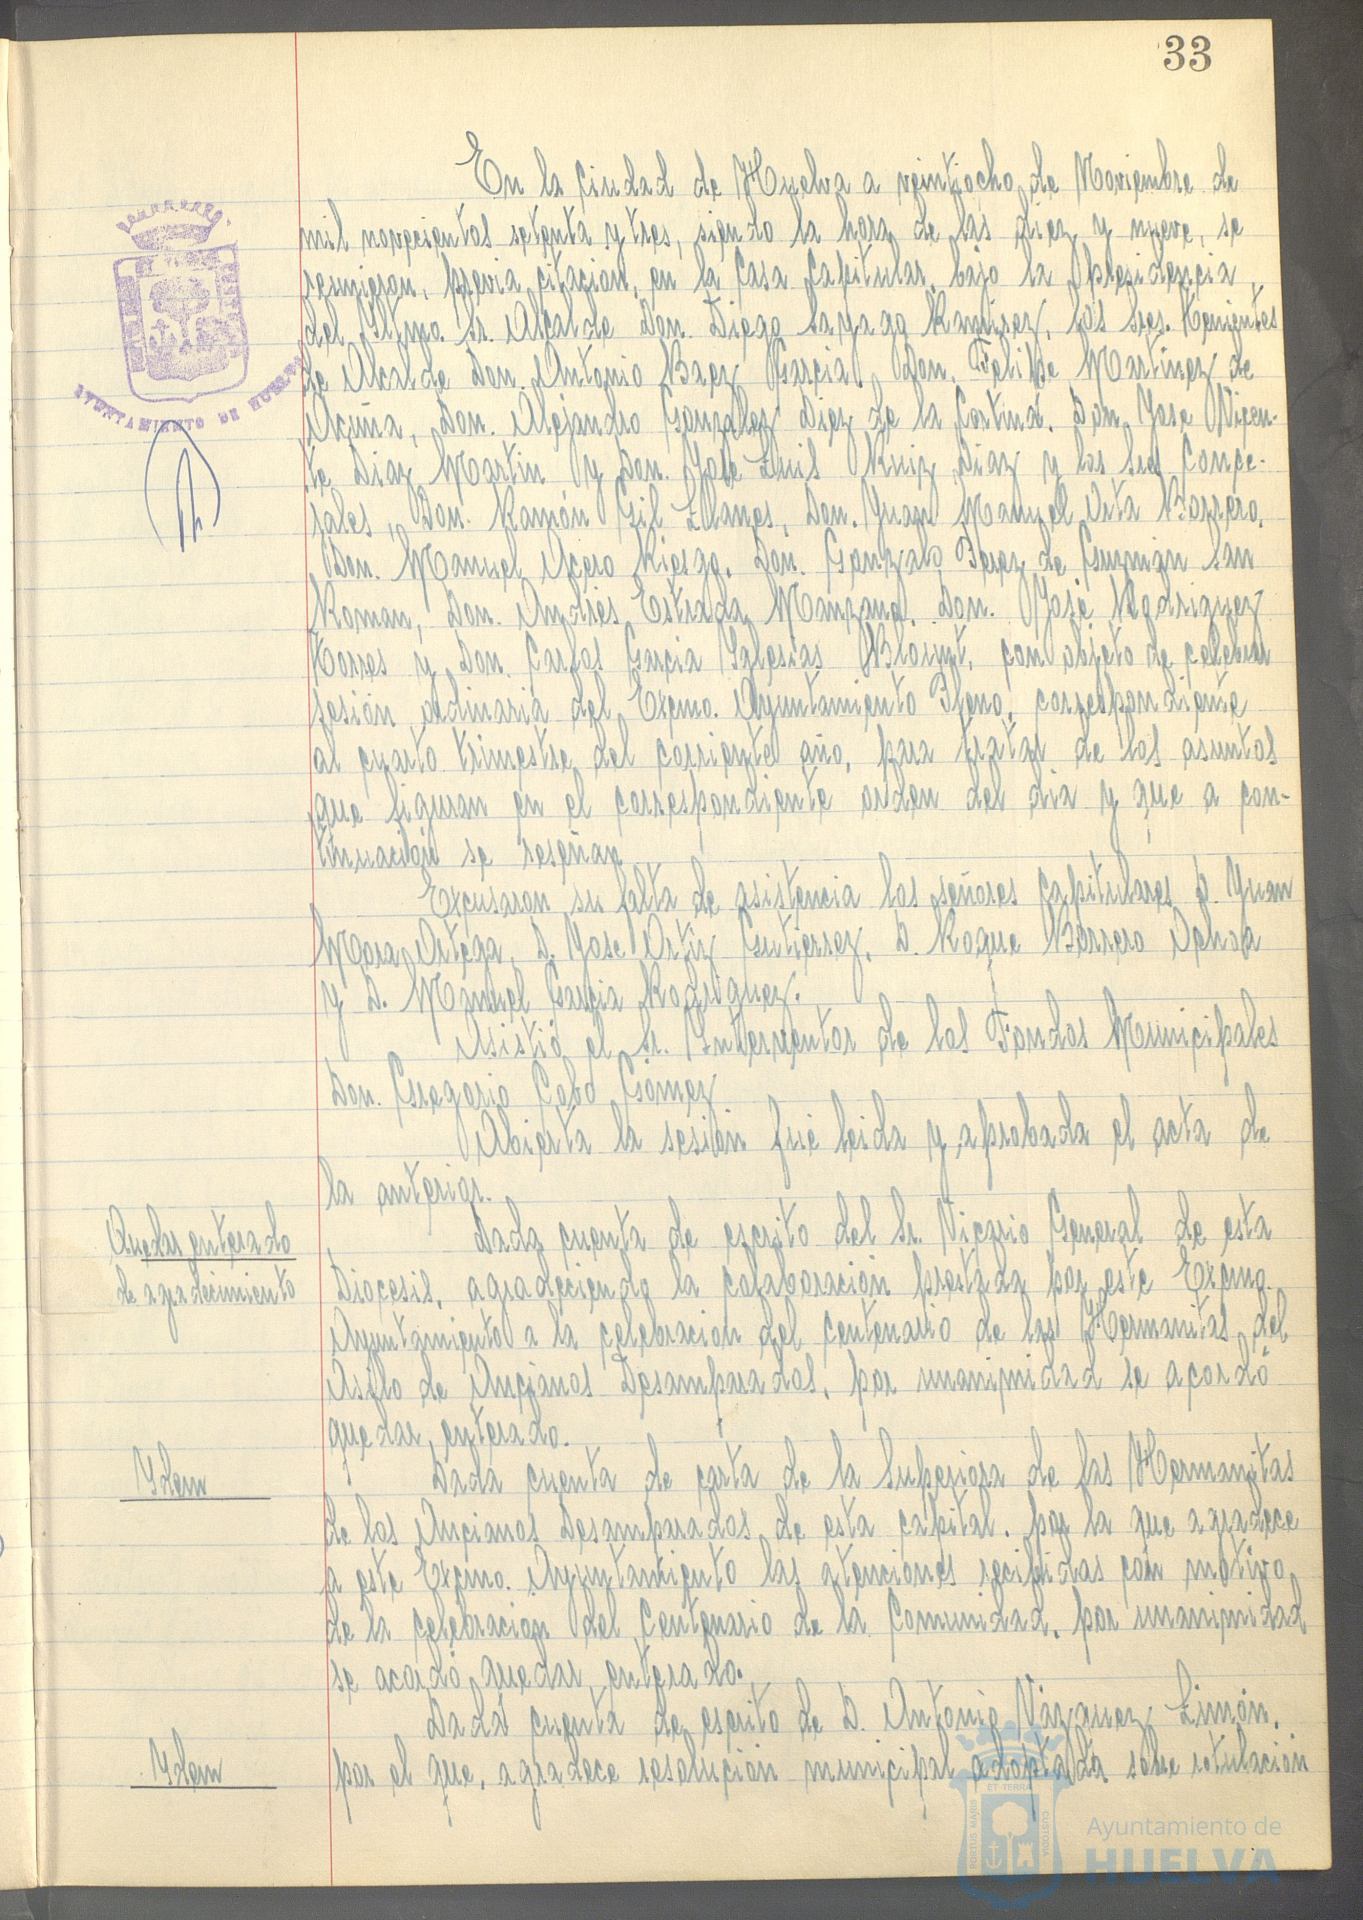 33
En la Ciudad de Huelva a veintiocho de Noviembre de
mil novecientos setenta y tres, siendo la hora de las diez y nueve, se
reunieron, previa citación, en la Casa Capitular, bajo la Presidencia
del Iltmo. Sr. Alcalde Don. Diego Sayago Ramirez, los Sres. Tenientes
de Alcalde Don. Antonio Baez Garcia, Don. Felipe Martinez de
Acuña, Don. Alejandro Gonzalez Diez de la Cortina, Don Jose Vicen-
te Diaz Martin y Don. Jose Luis Ruiz Diaz y los Sres Conce-
jales, Don. Ramón Gil Llanes, Don. Juan Manuel Orta Borrero,
Don. Manuel Acero Riesgo, Don. Gonzalo Perez de Guzmán San
Roman, Don. Andres Estrada Manzano, Don. José Rodriguez
Torres y Don. Carlos Garcia Iglesias Blount, con objeto de celebrar
sesión ordinaria del Excmo. Ayuntamiento Pleno, correspondiente
al cuarto trimestre del corriente año, para tratar de los asuntos
que figuran en el correspondiente orden del dia y que a con-
tinuación se reseñan
Excusaron su falta de asistencia los señores Capitulares D. Juan
Mora Ortega, D. Jose Ortiz Gutierrez, D. Roque Barrero Ochoa
y D. Manuel Garcia Rodriguez.
Asistió el Sr. Interventor de los Fondos Municipales
Don. Gregorio Cabo Gómez
Abierta la sesión fue leida y aprobada el acta de
la anterior.
Quedar enterado
de agradecimiento
Dada cuenta de escrito del Sr. Vicario General de esta
Diocesis, agradeciendo la colaboración prestada por este Excmo.
Ayuntamiento a la celebracion del centenario de las Hermanitas del
Asilo de Ancianos Desamparados, por unanimidad se acordó
quedar enterado.
Idem
Dada cuenta de carta de la Superiora de las Hermanitas
de los Ancianos Desamparados de esta capital, por la que agradece
a este Excmo. Ayuntamiento las atenciones recibidas con motivo
de la celebracion del Centenario de la Comunidad, por unanimidad
se acordó quedar enterado.
Idem
Dada cuenta de escrito de D. Antonio Vázquez Limón,
por el que, agradece resolución municipal adoptada sobre rotulación
AYUNTAMIENTO DE HUELVA
PORTUS MARIS
ET TERRÆ
CUSTODIA
Ayuntamiento de
HUELVA